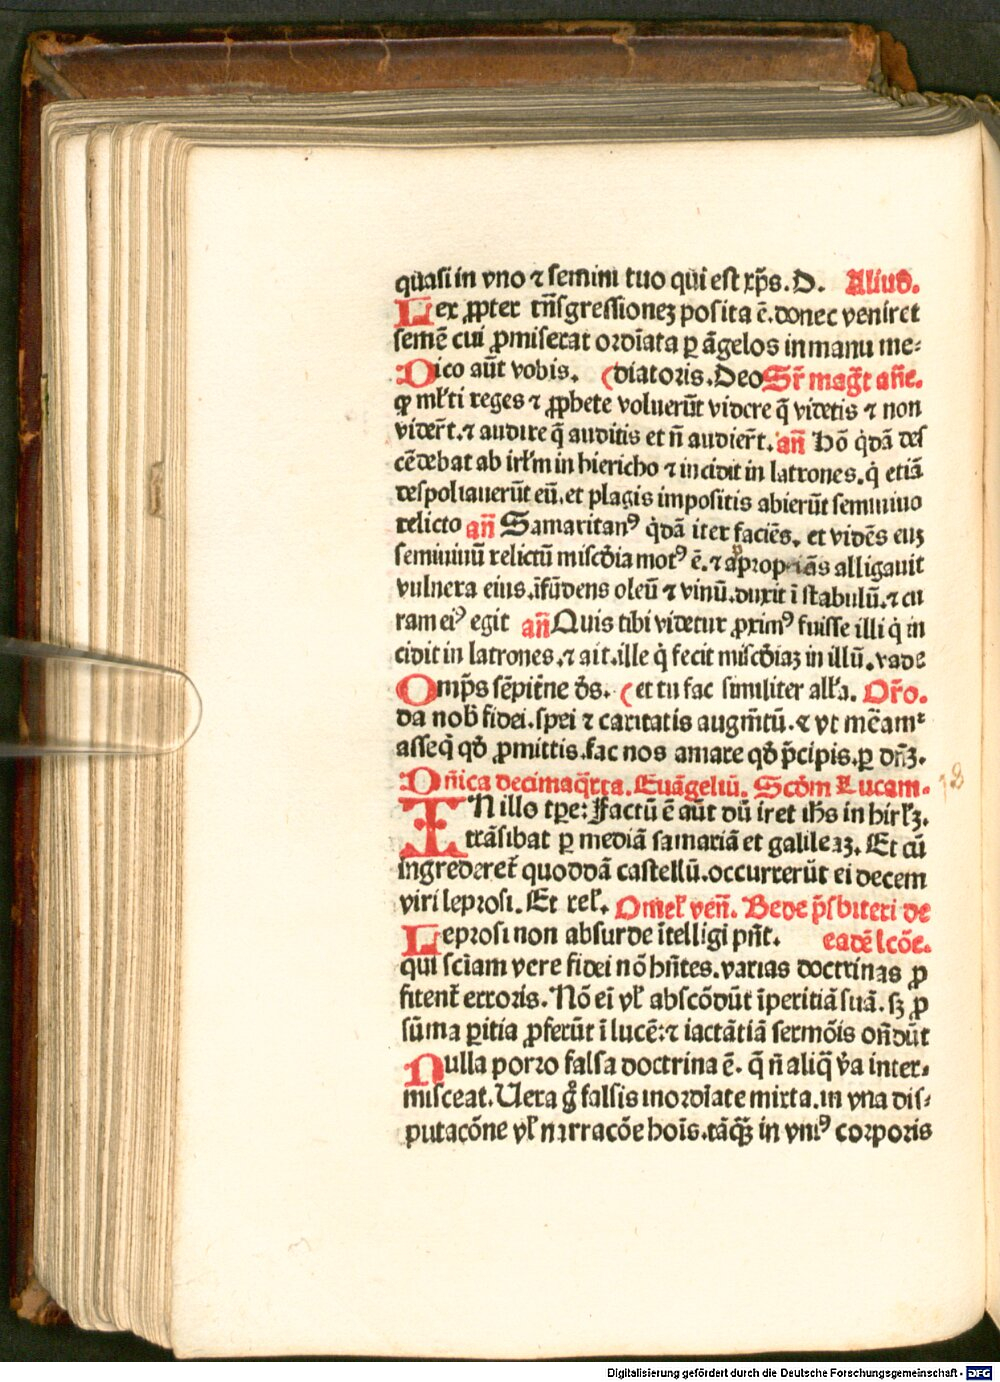 quasi in vno ⁊ semini tuo qui est xp̄s. D. Alius.
Lex ꝓpter trñsgressionez posita ē. donec veniret
semē cui ꝓmiserat ordīata ꝑ āgelos in manu me-
Dico aūt vobis. (diatoris. Deo Sr̄ magt̄ añe.
ꝙ ml̄ti reges ⁊ ꝓphete voluerūt videre q̄ videtis ⁊ non
viderūt. ⁊ audire q̄ auditis et ñ audierūt. añ Hō q̇dā des
cēdebat ab irl̄m in hiericho ⁊ incidit in latrones. q̇ etiā
despoliauerūt eū. et plagis impositis abierūt semiuiuo
relicto añ Samaritanꝰ q̇dā iter faciēs. et vidēs euʒ
semiuiuū relictū mīscd̄ia motꝰ ē. ⁊ apropiās alligauit
vulnera eius. īfūdens oleū ⁊ vinū. duxit ī stabulū. ⁊ cu
ram eiꝰ egit añ Quis tibi videtur ꝓximꝰ fuisse illi q̇ in
cidit in latrones. ⁊ ait. ille q̇ fecit mīscd̄iaʒ in illū. vade
Omp̄s sēpitn̄e ds̄. (et tu fac similiter all̄a. Or̄o.
da nob̄ fidei. spei ⁊ caritatis augm̄tū. ⁊ vt mēam̄r
asseq̄ qd̄ ꝓmittis. fac nos amare qd̄ p̄cipis. ꝑ dn̄ʒ.
Dn̄ica decimaq̄rta. Euāgeliū. Scd̄m Lucam.
IN illo tp̄e: Factū ē aūt dū iret ih̄s in hirl̄ʒ.
trāsibat ꝑ mediā samariā et galileaʒ. Et cū
ingrederet̄ quoddā castellū. occurrerūt ei decem
viri leprosi. Et rel̄. Omel̄ veñ. Bede p̄sbiteri de
Leprosi non absurde ītelligi pn̄t. eadē lcōe.
qui sc̄iam vere fidei nō hn̄tes. varias doctrinas ꝓ
fitent̄ erroris. Nō eī vl̄ abscōdūt īperitiā suā. sʒ ꝓ
sūma ꝑitia ꝓferūt ī lucē: ⁊ iactātiā sermōis on̄dūt
Nulla porro falsa doctrina ē. q̄ ñ aliq̄ v̄a inter-
misceat. Uera gͦ falsis inordīate mixta. in vna dis-
putacōne vl̄ narracōe hoīs. tāqʒ̄ in vniꝰ corporis
Digitalisierung gefördert durch die Deutsche Forschungsgemeinschaft - DFG